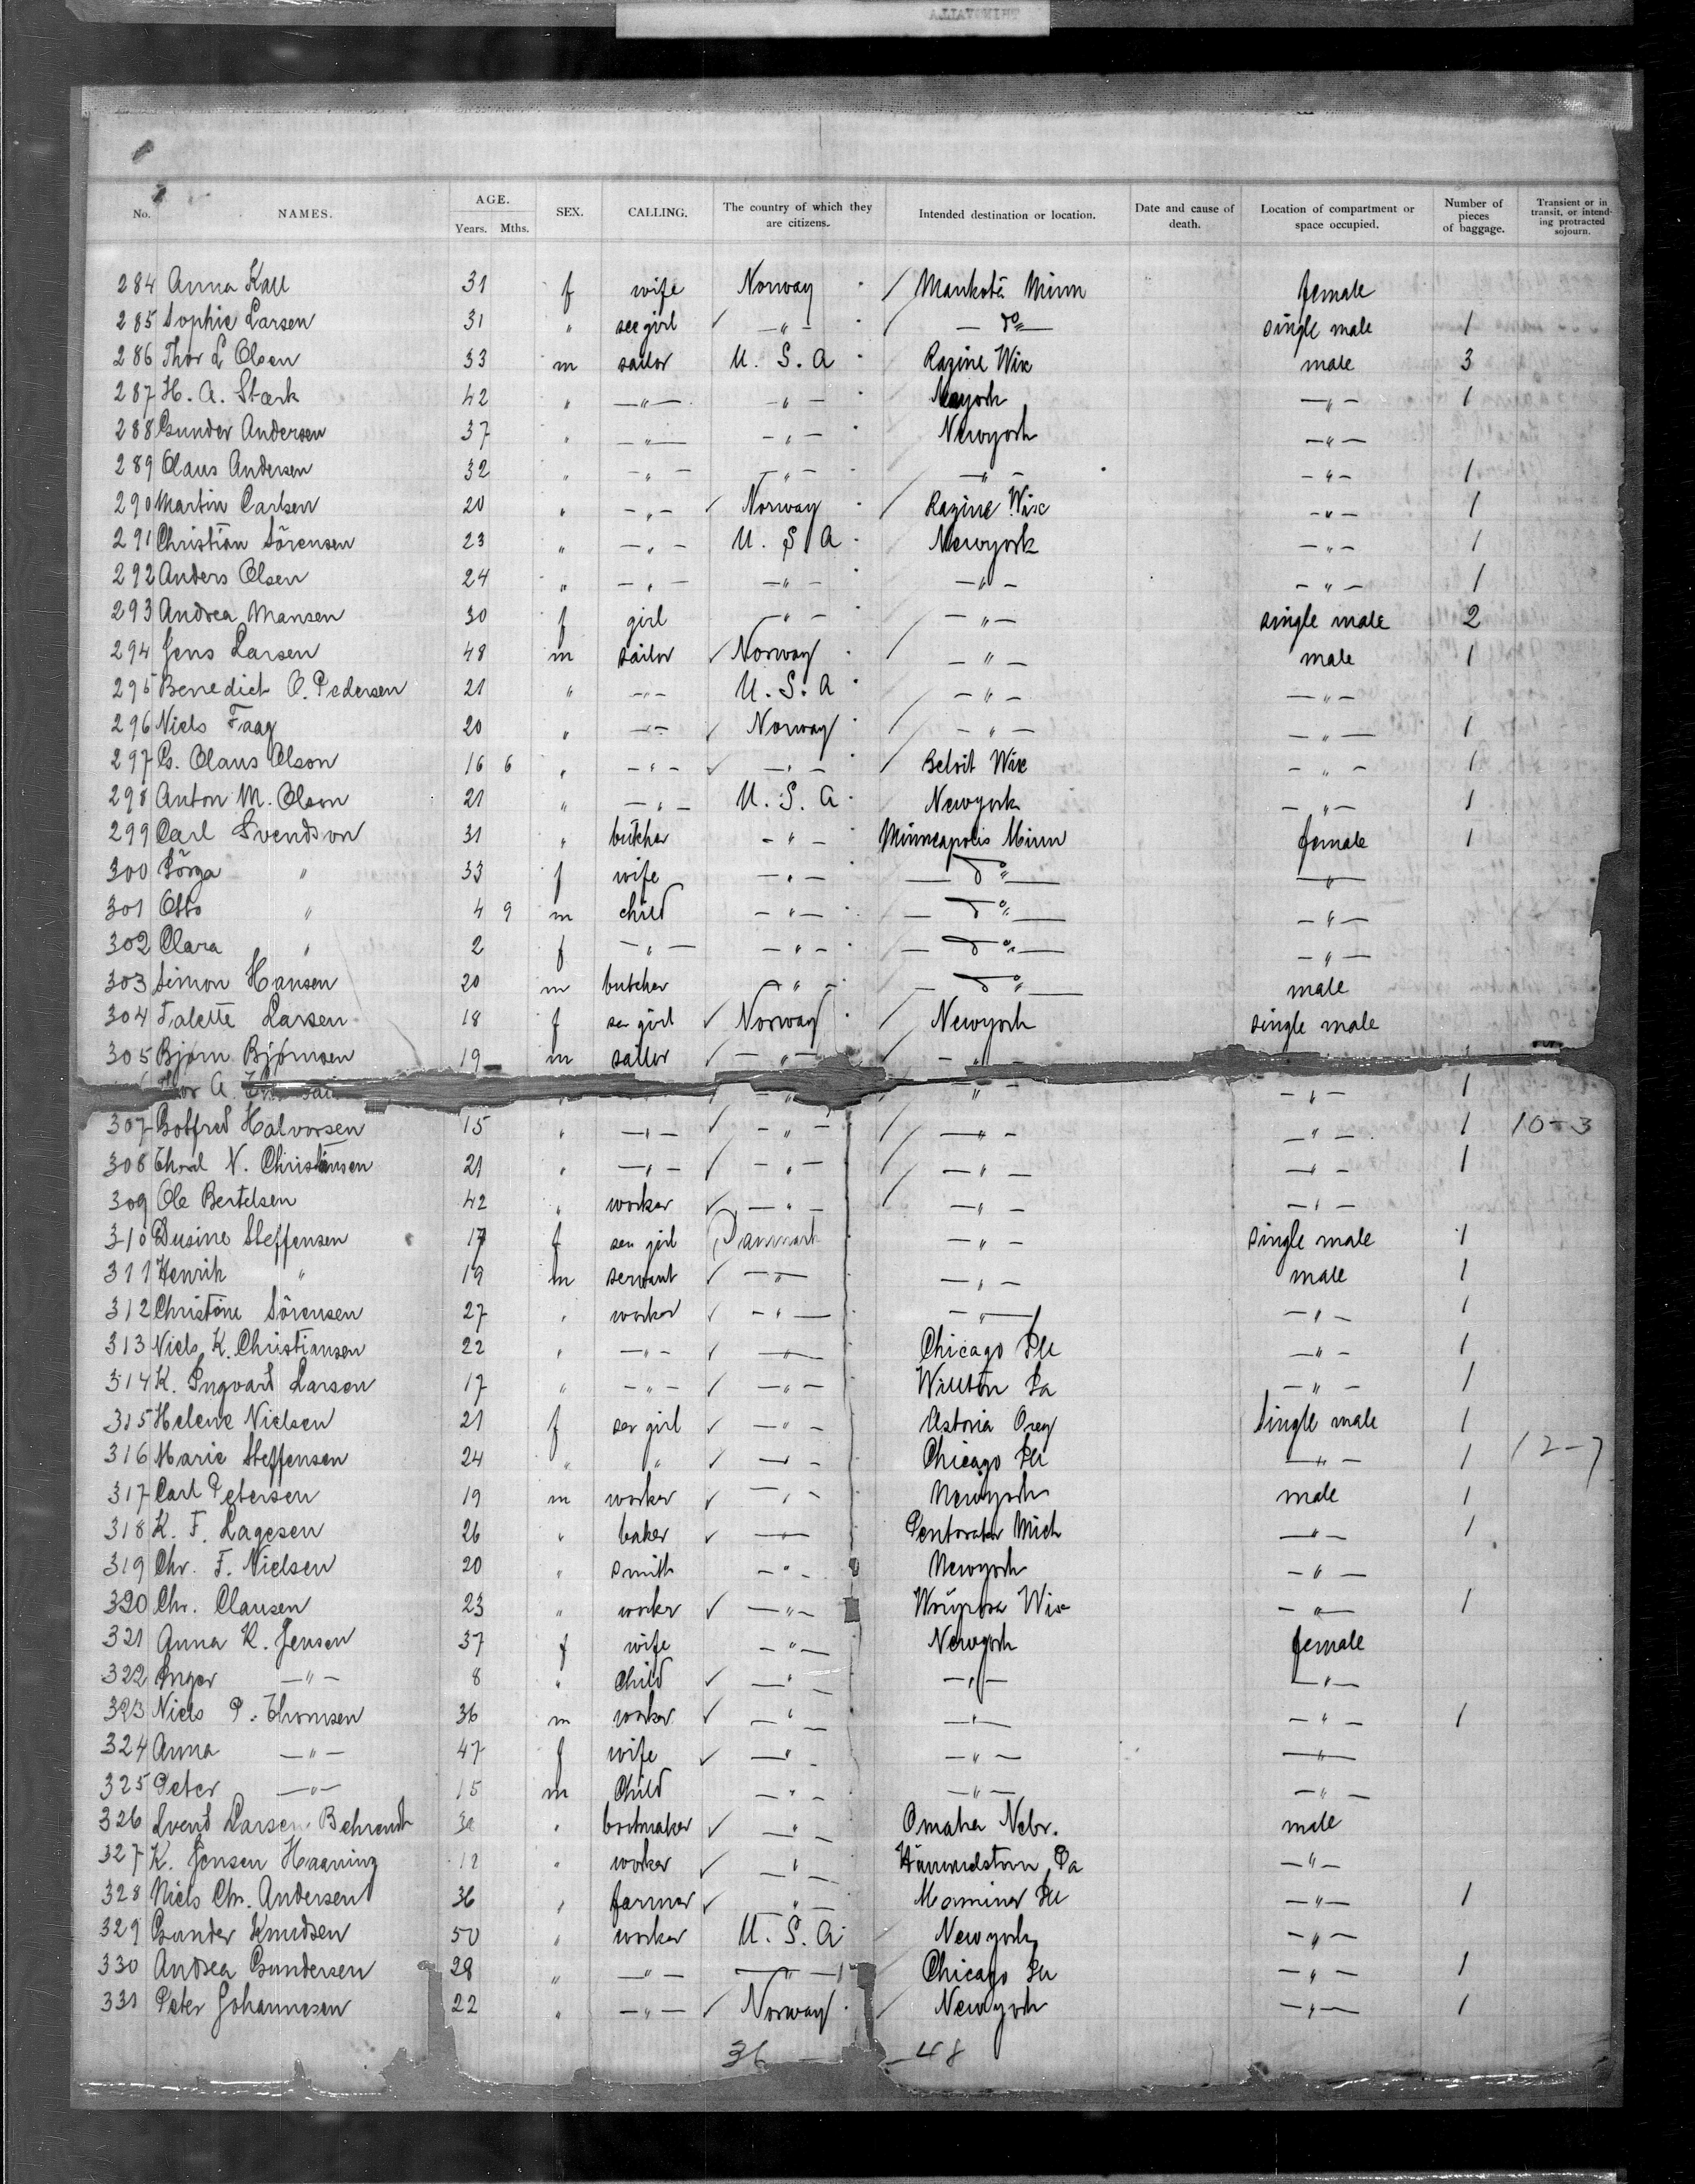 No. NAMES. AGE. Years. Mths. SEX. CALLING. The country of which they are citizens. Intended destination or location. Date and cause of death. Location of compartment or space occupied. Number of pieces of baggage. Transient or in transit, or intending protracted sojourn.
284 Anna Kall 31 f wife Norway Mankota Minn female
285 Sophie Larsen 31 " see girl —"— — do — single male 1
286 Thor L Olsen 33 m sailor U. S. A Razine Wisc male 3
287 H. A. Stark 42 " —"— —"— —"— 1
288 Gunder Andersen 37 " —"— —"— Newyork —"—
289 Olaus Andersen 32 " —"— —"— —"— —"— 1
290 Martin Carlsen 20 " —"— Norway Razine Wisc —"— 1
291 Christian Sörensen 23 " —"— U. S. A Newyork —"— 1
292 Anders Olsen 24 " —"— —"— —"— —"— 1
293 Andrea Mansen 30 f girl —"— —"— single male 2
294 Jens Larsen 48 m sailor Norway —"— male 1
295 Benedict O. Pedersen 21 " —"— U. S. A —"— —"—
296 Niels Faag 20 " —"— Norway —"— —"— 1
297 G. Olaus Olson 16 6 " —"— —"— Beloit Wisc —"— 1
298 Anton M. Olson 21 " —"— U. S. A Newyork —"— 1
299 Carl Svendson 31 " butcher —"— Minneapolis Minn female 1
300 " 33 f wife —"— — do — —"—
301 Otto " 4 9 m child —"— — do — —"—
302 Clara " 2 f —"— —"— — do — —"—
303 Simon Hansen 20 m butcher —"— — do — male
304 Talette Larsen 18 f ser girl Norway Newyork single male
305 Bjørn Bjørnsen 19 m sailor —"— —"—
A. —"— —"— —"— 1
307 Gotfred Halvorsen 15 " —"— —"— —"— —"— 1 10-3
308 Thorl N. Christansen 21 " —"— —"— —"— —"— 1
309 Ole Bertelsen 42 " worker —"— —"— —"—
310 Susine Steffensen 17 f ser girl Danmark —"— single male 1
311 Henrik " 19 m servant —"— —"— male 1
312 Christine Sörensen 27 " worker —"— —"— —"— 1
313 Niels K. Christiansen 22 " —"— —"— Chicago Ill —"— 1
314 K. Ingvart Larsen 17 " —"— —"— —"— 1
315 Helene Nielsen 21 f ser girl —"— Astoria Oreg single male 1
316 Marie Steffensen 24 " " —"— Chicago Ill —"— 1 12-7
317 Carl Petersen 19 m worker —"— Newyork male 1
318 K. F. Lagesen 26 " baker —"— Mich —"— 1
319 Chr. F. Nielsen 20 " smith —"— Newyork —"—
320 Chr. Clausen 23 " worker —"— Wisc —"— 1
321 Anna K. Jensen 37 f wife —"— Newyork female
322 Inger —"— 8 " Child —"— —"— —"—
323 Niels P. Thomsen 36 m worker —"— —"— —"— 1
324 Anna —"— 47 f wife —"— —"— —"—
325 Peter —"— 15 m Child —"— —"— —"—
326 Svend Larsen Behrendt " bootmaker —"— Omaha Nebr. male
327 K. Jensen Haaning " worker —"— Hummelstown Pa —"—
328 Niels Chr. Andersen 36 " farmer —"— Ill —"— 1
329 Gunder Knudsen 50 " worker U. S. A Newyork —"—
330 Andrea Gundersen 28 " —"— —"— Chicago Ill —"— 1
331 Peter Johannesen 22 " —"— Norway Newyork —"— 1
36 — 48